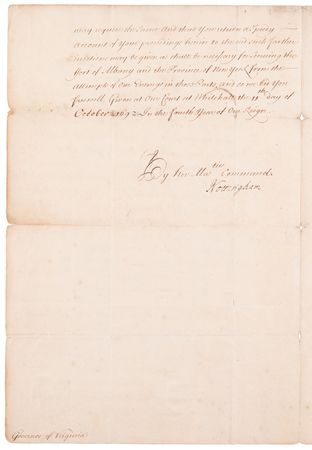 may require the same And that You return a speedy
Account of Your proceedings herein to the end such further
Directions may be given as shall be necessary for securing the
Fort of Albany and the Province of New York from the
Attempts of Our Enemys in those Parts, and so we bid You
farewell. Given at Our Court at Whitehall the 11th day of
October 1692. In the fourth Year of Our Reign.
By her Maties Command,
Nottingham
Governor of Virginia